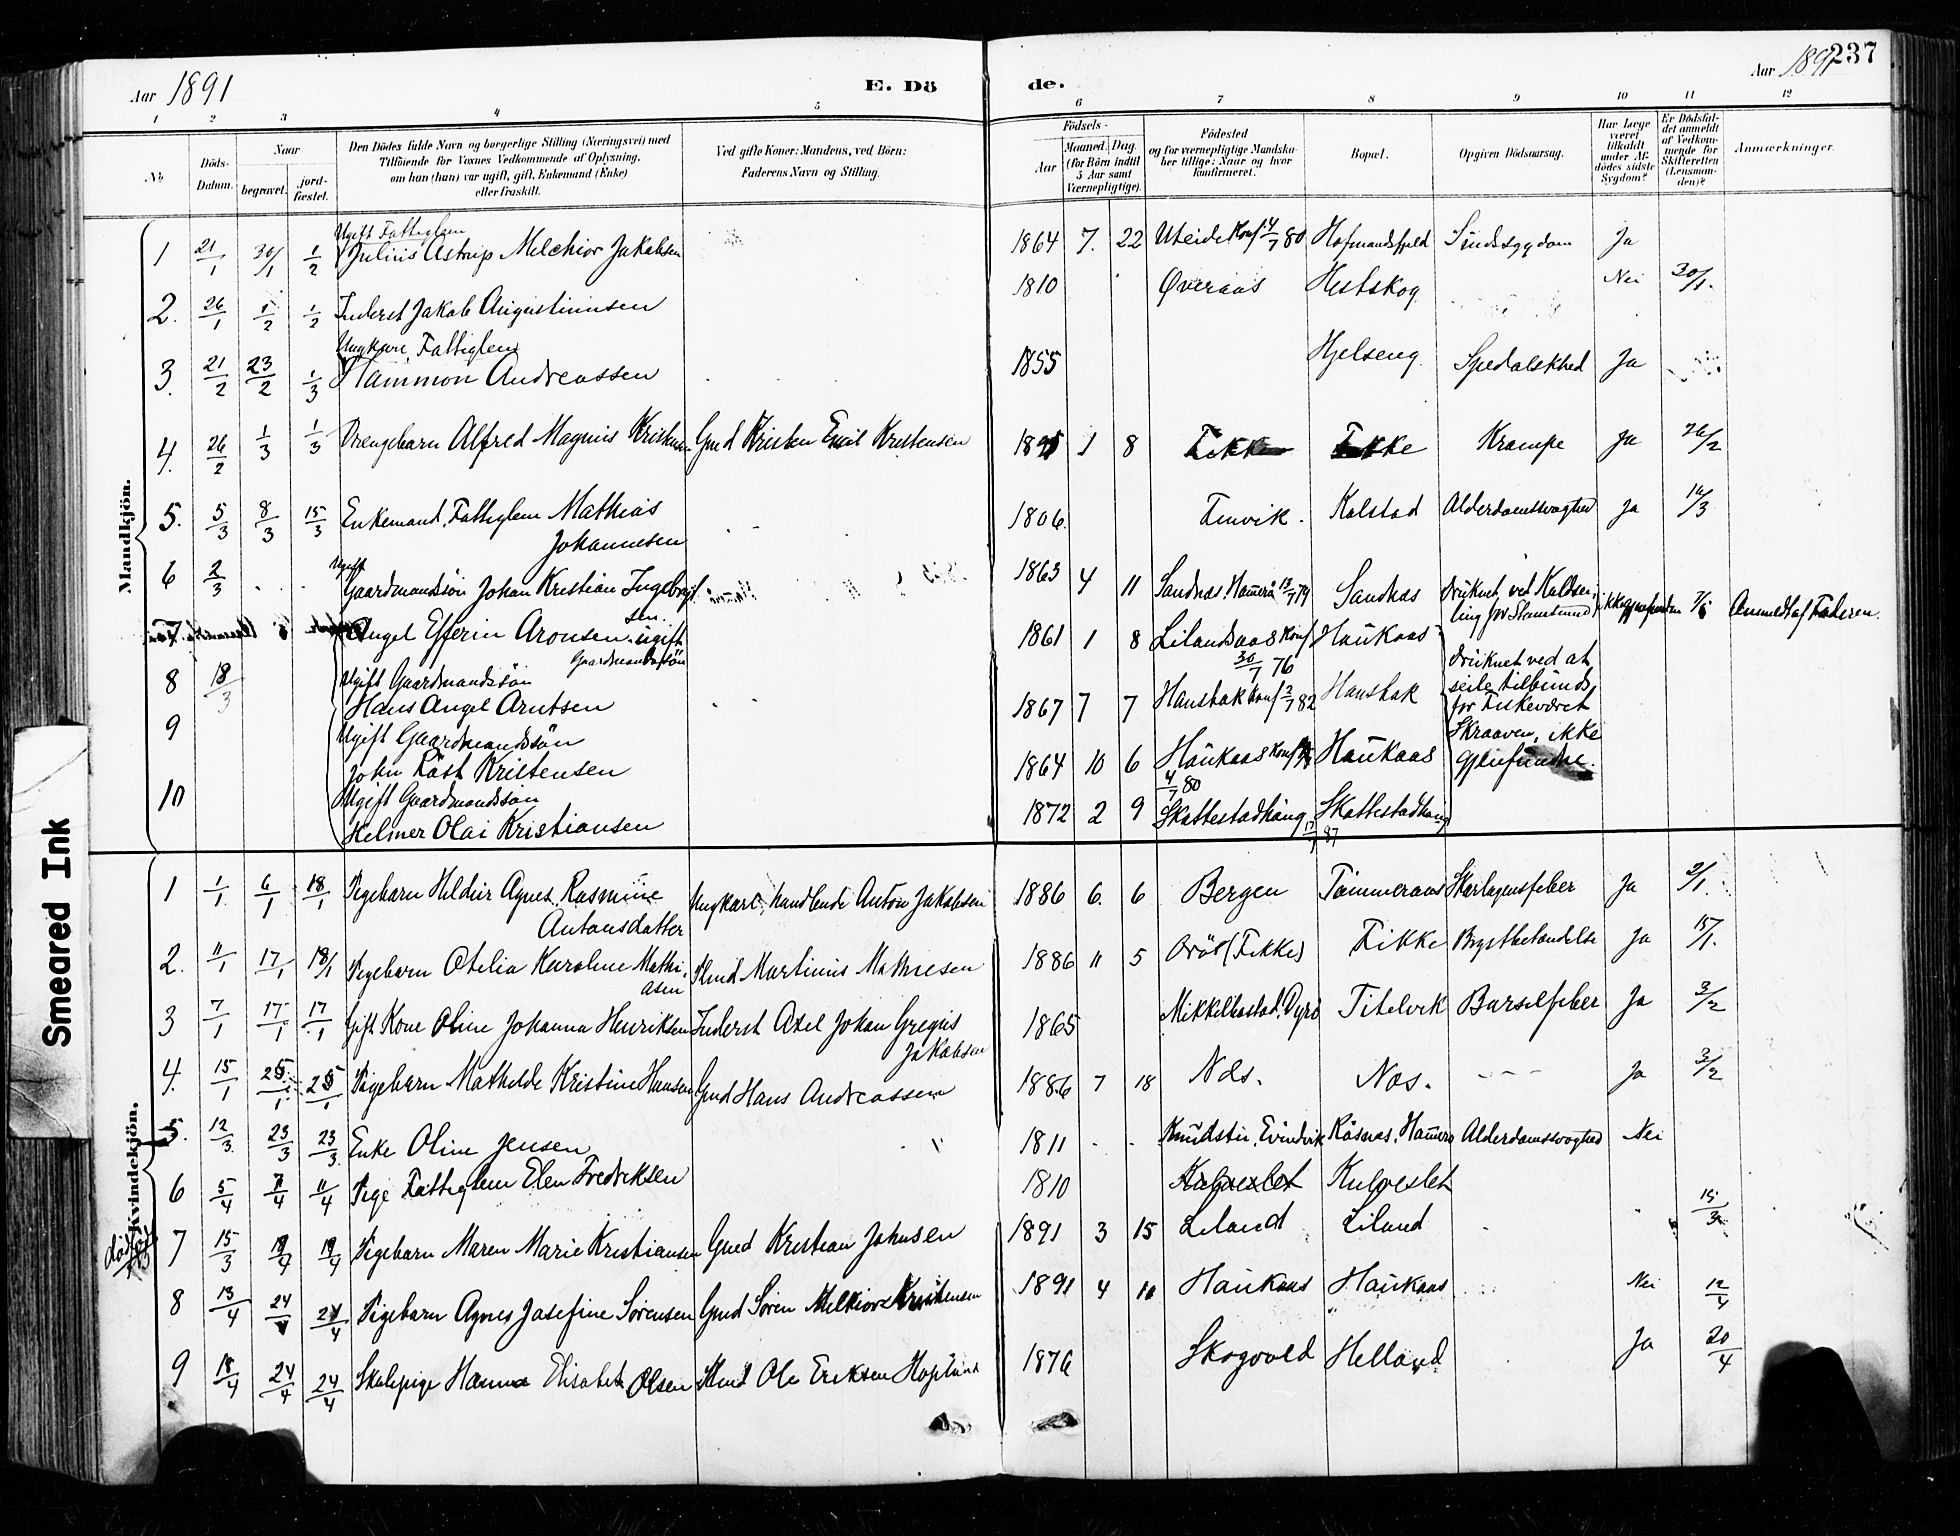 Aar 1891 E. Dö de. Aar 1891 237
1 2 3 4 5 6 7 8 9 10 11 12
No
Döds-Datum.
Naar
begravet.
jordfæstet.
Den Dödes fulde Navn og borgerlige Stilling (Næringsvei) med
Tilföiende for Voxnes Vedkommende af Oplysning,
om han (hun) var ugift, gift, Enkemand (Enke)
eller fraskilt.
Ved gifte Koner: Mandens, ved Börn:
Faderens Navn og Stilling.
Födsels-
Aar
Maaned. Dag.
(for Börn indtil
5 Aar samt
Værnepligtige).
Födested
og for værnepligtige Mandskaber tillige: Naar og hvor
konfirmeret.
Bopæl.
Opgiven Dödsaarsag.
Har Læge
været
tilkaldt
under Afdödes sidste
Sygdom?
Er Dödsfaldet anmeldt
af Vedkommende for
Skifteretten
(Lensmanden)?
Anmærkninger.
Mandkjön.
1 21/1 30/1 1/2 Ugift Fattiglem
Julius Astrup Melchior Jakobsen 1864 7. 22 Uteide Konf 4/7 80 Hofmandsfjeld Sindssygdom Ja
2. 26/1 1/2 1/2 Inderst Jakob Augustinussen 1810 Överaas Hestskog Nei 30/1.
3. 21/2 23/2 1/3 Ungkarl, Fattiglem
Hammon Andreassen 1855 Hjelseng Spedalskhed Ja
4. 26/2 1/3 1/3 Drengebarn Alfred Magnus Kristensen Gmd Kristen Emil Kristensen 1 8 Fikke Krampe Ja 26/2
5. 5/3 8/3 15/3 Enkemand, Fattiglem Mathias
Johannesen 1806. Finvik. Kalstad Alderdomssvaghed Ja 16/3
6 2/3 Ugift
Gaardmandssön Johan Kristian Ingebrigtsen 1863 4 11 Sandnas, Hamerö 13/7 79 Sandnas druknet ved Kuldseiling Anmeldt af Faderen.
Angel Efferin Aronsen ugift
Gaardmandssön 1861 1 8 Lilandsaas Konf 30/7 76 Haukaas
8 18/3 Ugift Gaardmandssön
Hans Angel Arntsen 1867 7 7 Haustak konf 2/7 82 Haustak druknet ved at
seile tilbunds
for Fiskeværet
Skraaven, ikke
gjenfundne.
9 Ugift Gaardmandssön
John Räst Kristensen 1864 10 6 Haukaas konf 4/7 80 Haukaas
10 Ugift Gaardmandssön
Helmer Olai Kristiansen 1872 2 9 Skattestadhaug 87 Skattestadhaug
Kvindekjön.
1 1/1 6/1 18/1 Pigebarn Hildur Agnes Rasmine
Antonsdatter Ungkarl, handlende Anton Jakobsen 1886 6. 6 Bergen Tömmeraas Skarlagensfeber Ja 2/1.
2. 11/1 17/1 18/1 Pigebarn Otelia Karoline Mathiasen Martinus Mathiesen 1886 11 5 Orös (Fikke) Fikke Brystbetændelse Ja 15/1.
3 7/1 17/1 17/1 Gift Kone Oline Johanna Henriksen Inderst Axel Johan Gregus
Jakobsen 1865 Mikkelbostad, Dyrö Titelvik Barselfeber Ja 3/2
4. 15/1 25/1 25/1 Pigebarn Mathilde Kristine Hansen Gmd Hans Andreassen 1886 7 18 Næs. Næs. Ja 3/2
5. 12/3 23/3 23/3 Enke Oline Jensen 1811 Eivindvik Räsnas, Hamerö Alderdomssvaghed Nei
6 5/4 11/4 Pige Fattiglem Elen Fredriksen 1810 Kulpeslet Kulpeslet
7 15/3 19/4 19/4 Pigebarn Maren Marie Kristiansen Gmd Kristian Johnsen 1891 3 15 Liland Liland 15/3
8 13/4 24/4 24/4 Pigebarn Agnes Josefine Sörensen Gmd Sören Melkior Kristensen 1891 4 10 Haukaas Haukaas Nei 12/4
9 18/4 24/4 24/4 Skolepige Hanna Elisabet Olsen Ole Eriksen 1876 Skogvold Helland Ja 20/4
Smeared Ink